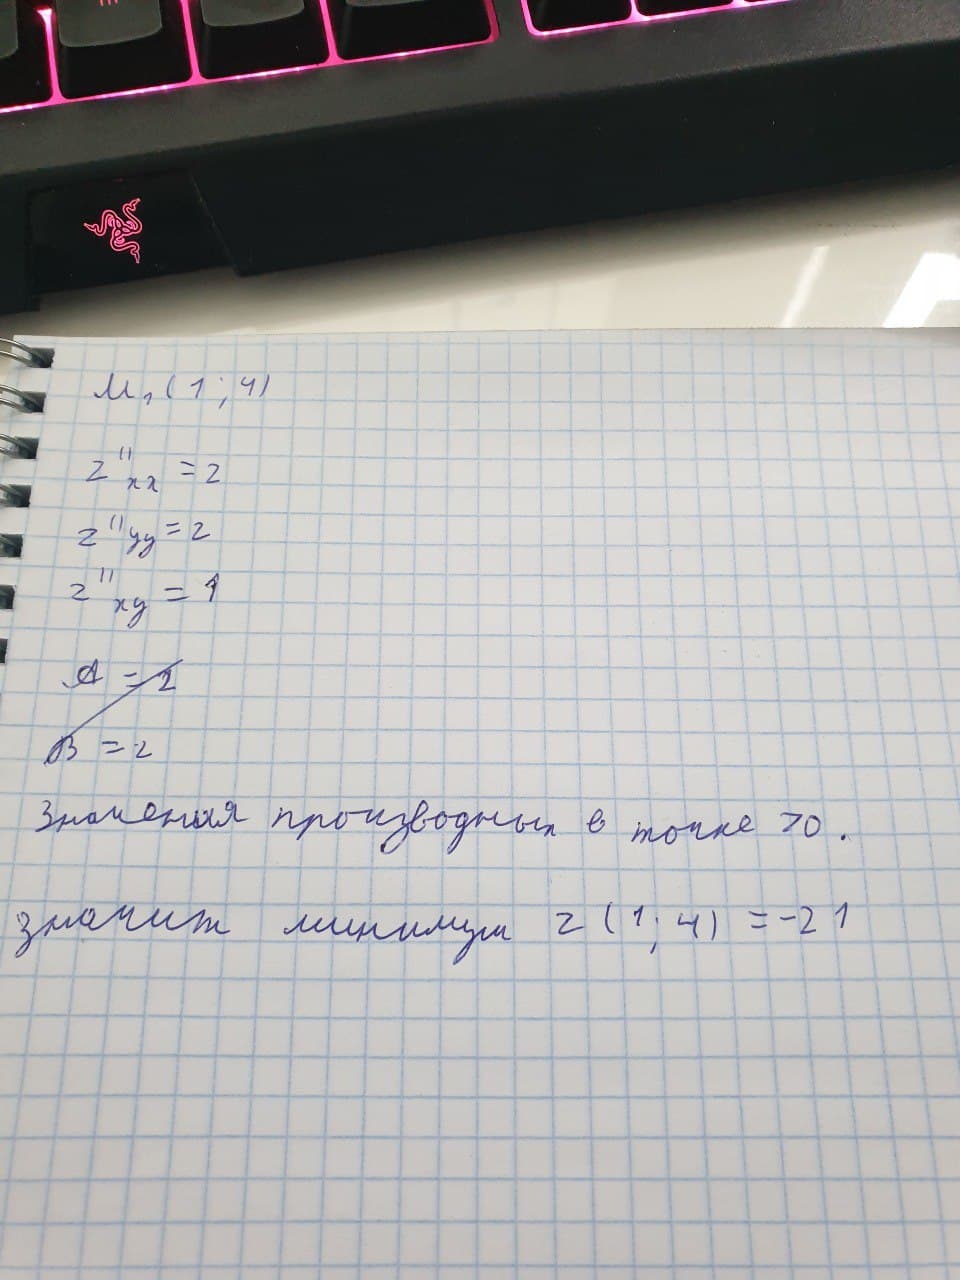 M₁(1;4)
z''xx = 2
z''yy = 2
z''xy = 1
A = 2
B = 2
Значения производных в точке >0.
значит минимум z(1;4) = -21